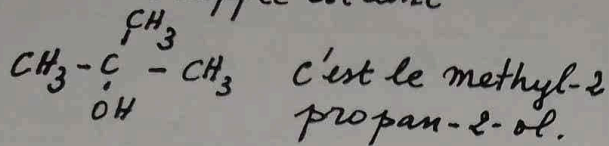 CH3
CH3 - C - CH3 c'est le methyl-2
OH propan-2-ol.